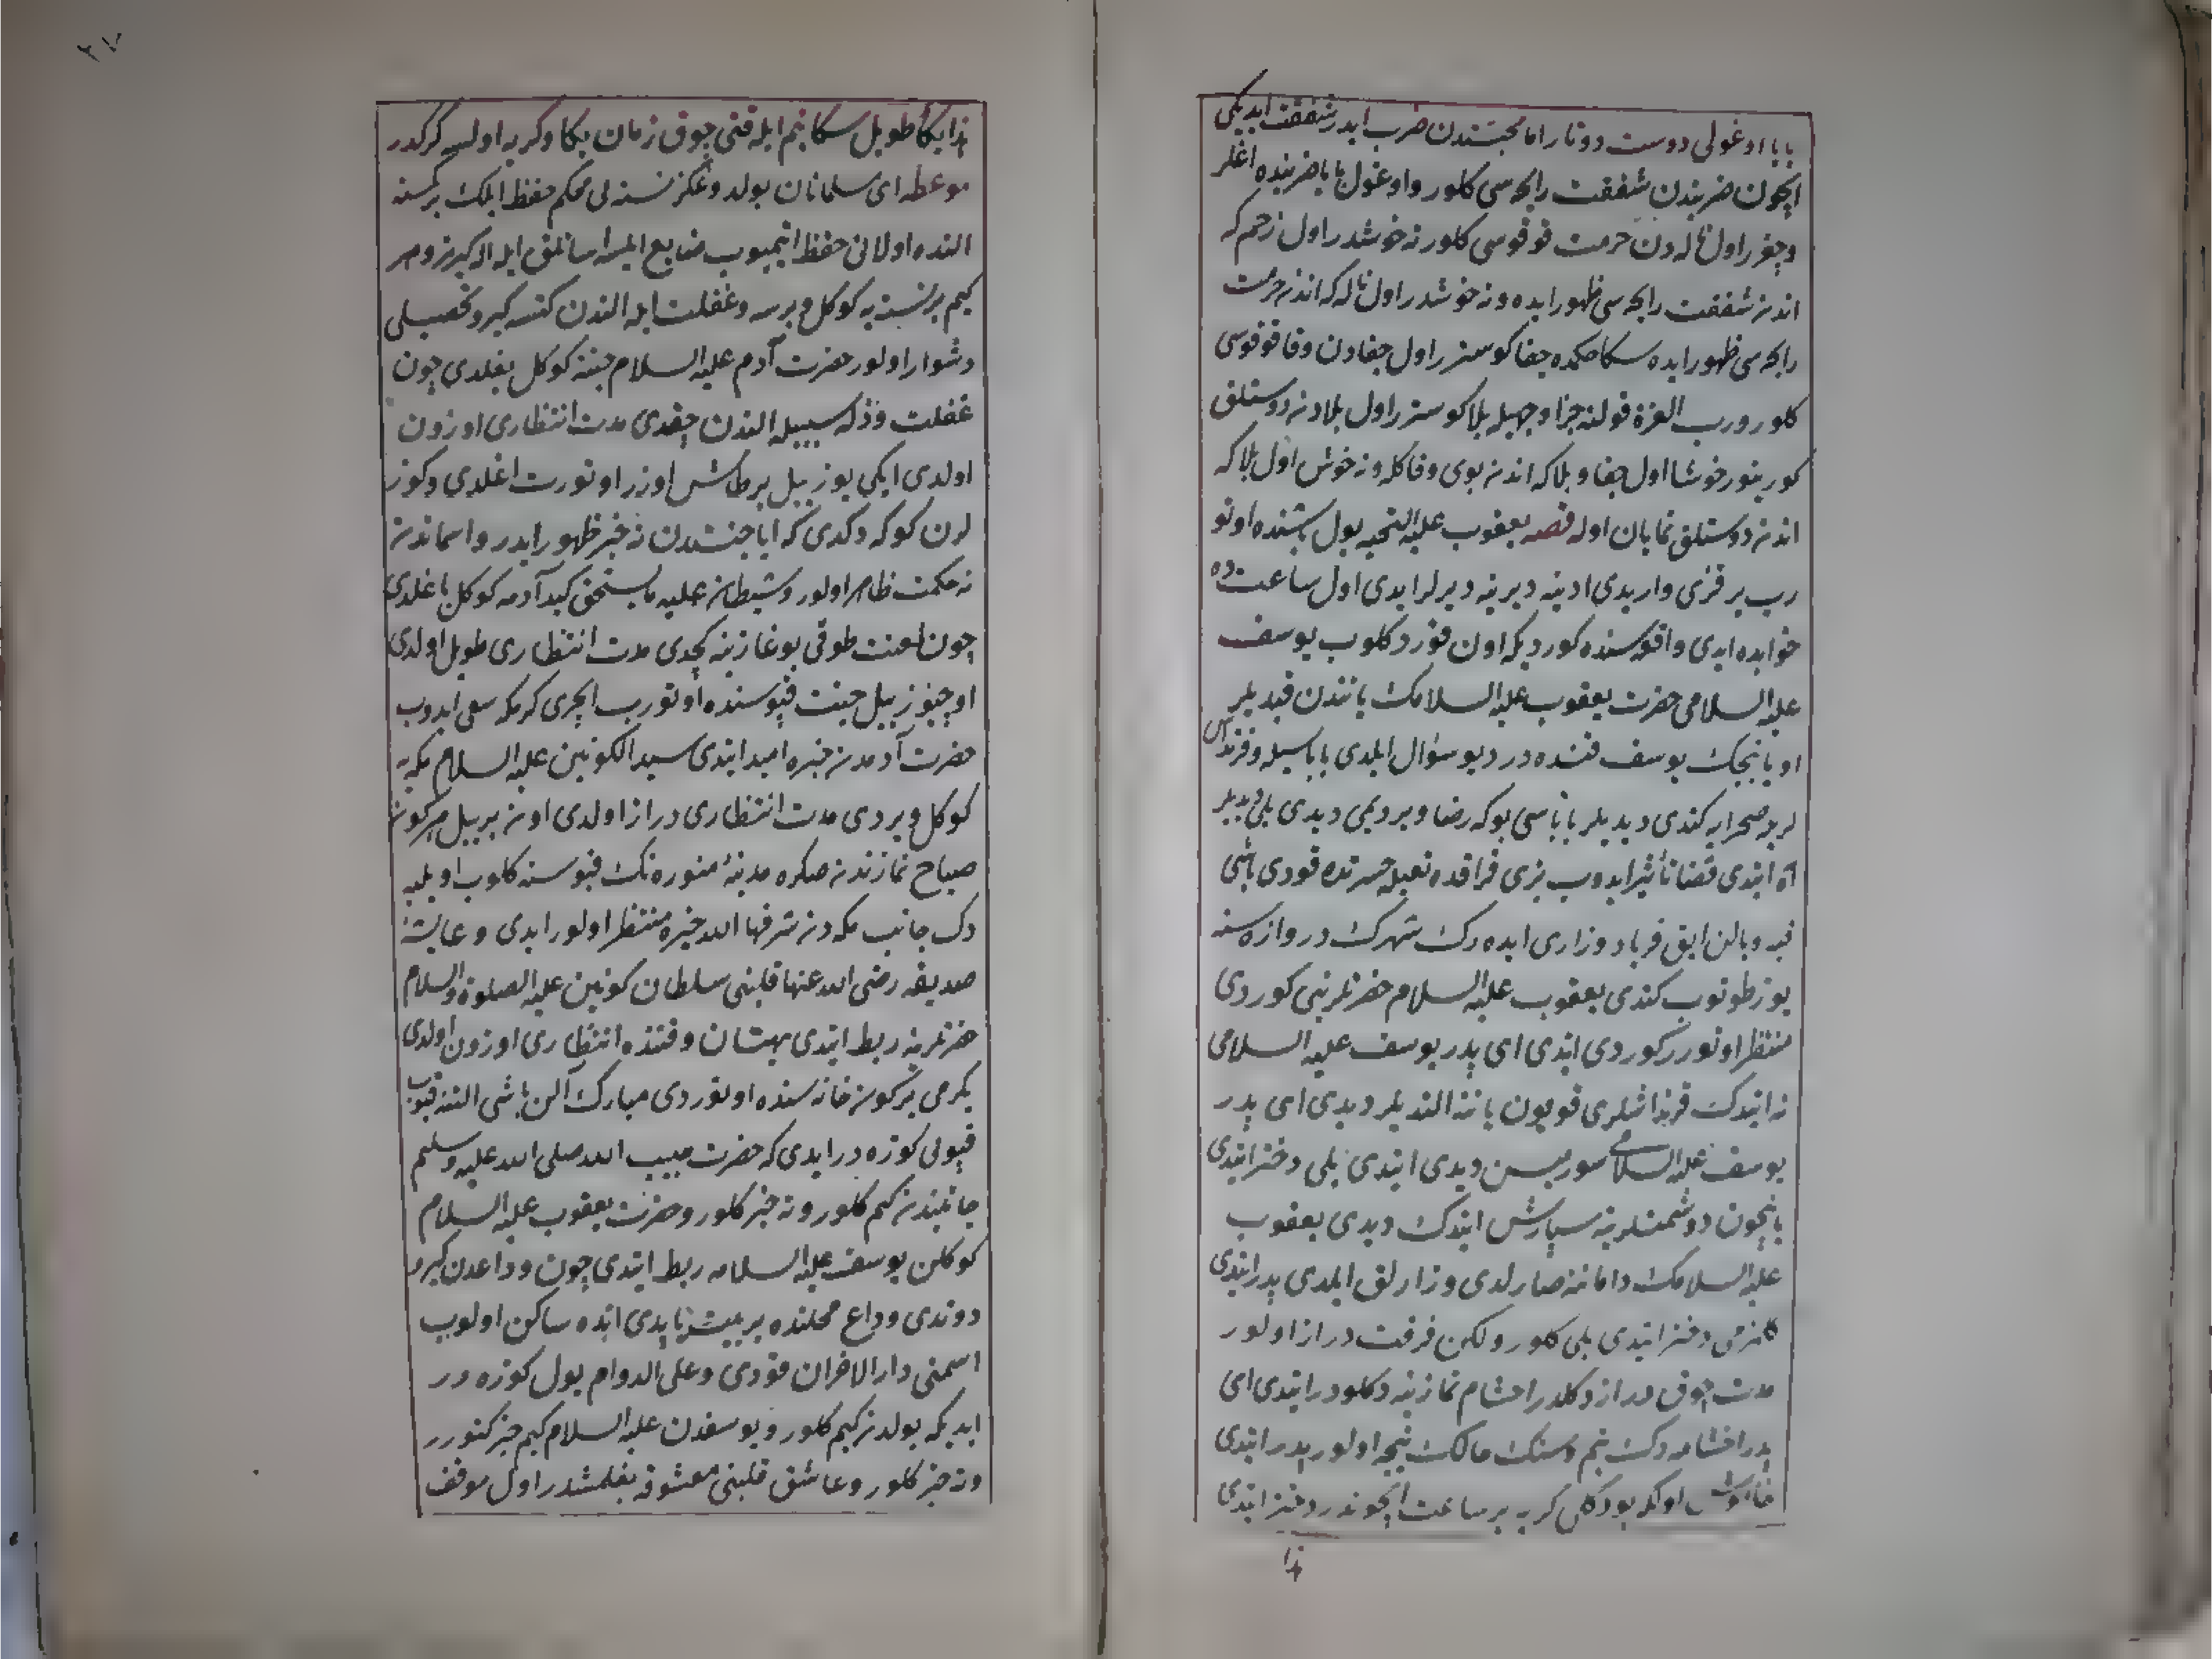 بابا اوغولی دوست دوتار اما محبتندن ضرب ایدر شفقت ایدیکی
ایچون ضربندن شفقت رایحه سی کلور و اوغول بابا ضربنده اغلر
وچغرر اول ناله دن حرمت قوقوسی کلور نه خوشدر اول زخم که
اندن شفقت رایحه سی ظهور ایده و نه خوشدر اول ناله که اندن حرمت
رایحه سی ظهور ایده سکا حکمده جفا کوستر اول جفادن وفا قوقوسی
کلور ورب العزة قولنه جزا وجهیله بلا کوستر اول بلادن دوستلق
کورینور خوشا اول جفا و بلا که اندن بوی وفا کله و نه خوش اول بلا که
اندن دوستلق نمایان اوله قصه یعقوب علیه التحیه یول بشنده اوتو
رب بر قزی واریدی ادینه دیرینه دیرلر ایدی اول ساعت ده
خوابده ایدی واقعه سنده کوردیکه اون قورد کلوب یوسف
علیه السلامی حضرت یعقوب علیه السلامک یانندن قپدیلر
اویانیجک یوسف قنده در دیو سؤال ایلدی باباسیله و قرنداش
لریله صحرایه کندی دیدیلر باباسی بوکه رضا ویردیمی دیدی بلی دیدیلر
آه ایتدی قضا تأثیر ایدوب بزی فراقده حسرتده قودی باشی
قبا و یالن ایق فریاد وزاری ایده رک شهرک دروازه سنه
یوز طوتوب کندی یعقوب علیه السلام حضرتلرینی کوردی
منتظر اوتورر کوردی ایتدی ای پدر یوسف علیه السلامی
نه ایتدک قرنداشلری قویون یاننه الندیلر دیدی ای پدر
یوسف علیه السلامی سورمیسن دیدی ایتدی بلی دختر ایتدی
یانیچون دوشمنلرینه سپارش ایتدک دیدی یعقوب
علیه السلامک داماننه صارلدی وزارلق ایلدی پدر ایتدی
کلنزمی دختر ایتدی بلی کلور ولکن فرقت دراز اولور
مدت چوق دراز دکلدر اخشام نمازینه دک کلور ایتدی ای
پدر اخشامه دک بنم و سنک حالک نیجه اولور پدر ایتدی
خاموش اول که بو دکلی کریه بر ساعت ایچوندر دختر ایتدی
بذا
٢٧
بذا بکاء طویل سکا بنم ایله قتی چوق زمان بکا وکریه اولسه کرکدر
موعظه ای مسلمانان بولدوغکز نسنه لی محکم حفظ ایلمک برکسنه
النده اولانی حفظ ایتمیوب ضایع ایلسه اسانلق ایله اله کیرمز و هر
کیم بر نسنه یه کوکل ویرسه و غفلت ایله الندن کتسه کیرو تحصیلی
دشوار اولور حضرت آدم علیه السلام جنته کوکل بغلدی چون
غفلت و ذله سبیله الندن چقدی مدت انتظاری اوزون
اولدی ایکی یوز ییل بر طاش اوزر اوتورت اغلدی وکوز
لرن کوکه دکدی که ایا جنتدن نه خبر ظهور ایدر و اسماندن
نه حکمت ظاهر اولور و شیطان علیه ما یستحق کید آدمه کوکل باغلدی
چون لعنت طوقی بوغازینه کچدی مدت انتظاری طویل اولدی
اوچیوز ییل جنت قپوسنده اوتورب ایچری کرمکه سعی ایدوب
حضرت آدمدن خبره امید ایتدی سید الکونین علیه السلام مکه یه
کوکل ویردی مدت انتظاری دراز اولدی اون بر ییل هر کون
صباح نمازندن صکره مدینهٔ منوره نک قپوسنه کلوب اویلیه
دک جانب مکه دن شرفها الله خبره منتظر اولور ایدی و عایشهٔ
صدیقه رضی الله عنها قلبنی سلطان کونین علیه الصلوة والسلام
حضرتلرینه ربط ایتدی بهتان و فتنده انتظاری اوزون اولدی
یکرمی بر کون خانه سنده اوتوردی مبارک الن باشی التنه قیوب
قپولی کوزه در ایدی که حضرت حبیب الله صلی الله علیه وسلم
جانبندن کیم کلور و نه خبر کلور و حضرت یعقوب علیه السلام
کوکلن یوسف علیه السلامه ربط ایتدی چون وداعدن کیرو
دوندی وداع محلنده بر بیت یاپدی انده ساکن اولوب
اسمنی دار الاحزان قودی وعلی الدوام یول کوزه در
ایدیکه یولدن کیم کلور و یوسفدن علیه السلام کیم خبر کتورر
ونه خبر کلور و عاشق قلبنی معشوقه بغلمشدر اول موقف